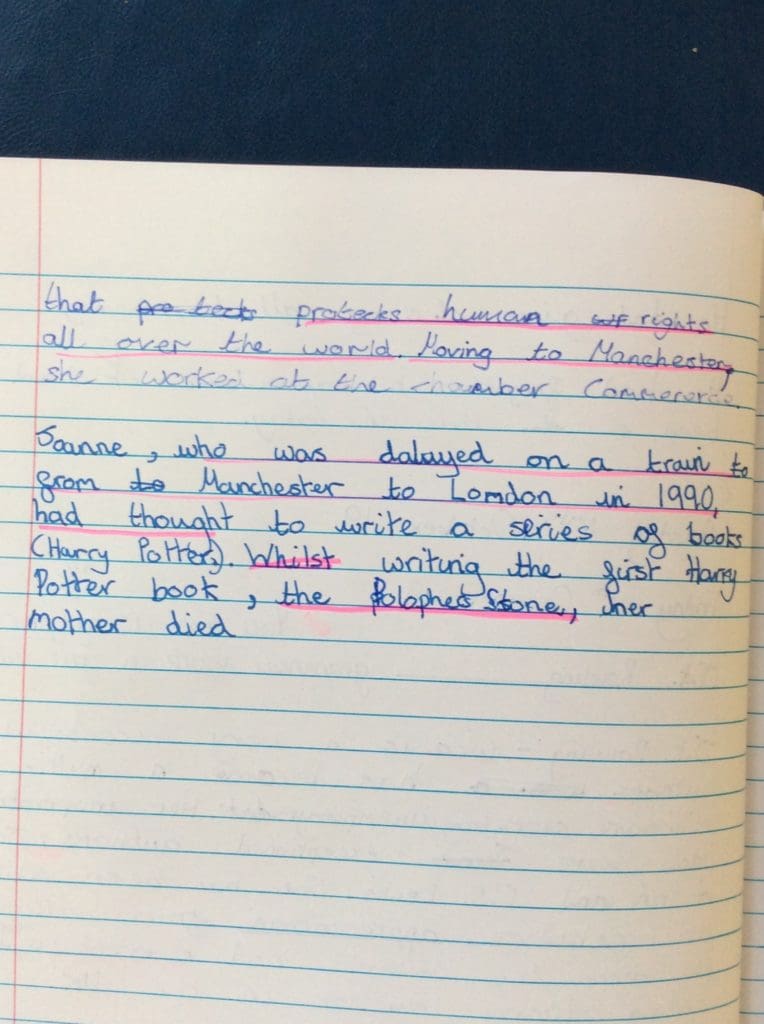 that pro tects protecks human wf rights
all over the world. Moving to Manchester,
she worked at the chamber Commererce.
Joanne, who was dalayed on a train to
from to Manchester to Lomdon in 1990,
had thought to write a series of books
(Harry Potters). Whilst writing the first Harry
Potter book, the Polophers Stone, her
mother died